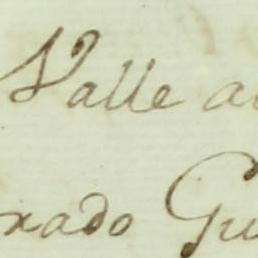 Valle a
rado Gu